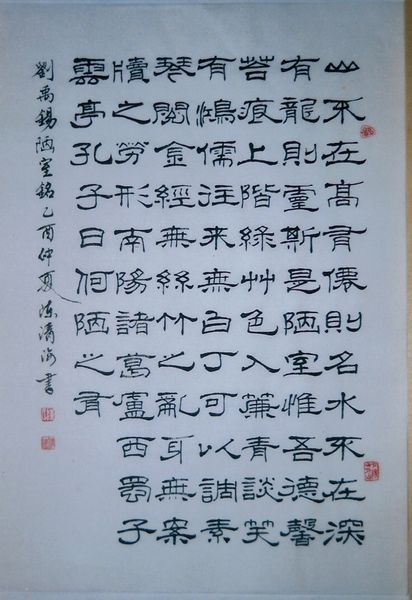 山不在高有僊則名水不在深
有龍則靈斯是陋室惟吾德馨
苔痕上階綠艸色入簾青談笑
有鴻儒往來無白丁可以調素
琴閱金經無絲竹之亂耳無案
牘之勞形南陽諸葛廬西蜀子
雲亭孔子曰何陋之有
劉禹錫陋室銘乙酉仲夏 海書